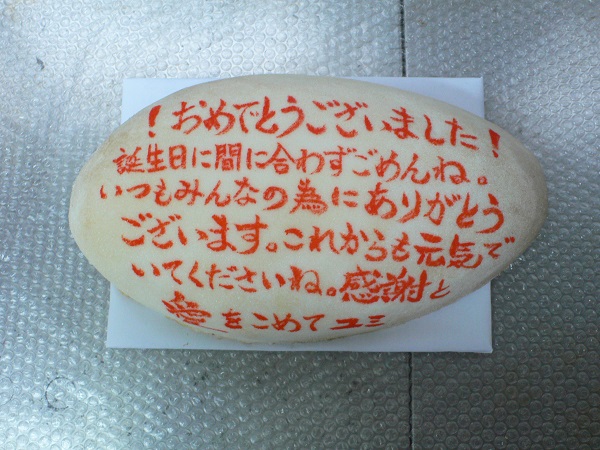 ！おめでとうございました！
誕生日に間に合わずごめんね。
いつもみんなの為にありがとう
ございます。これからも元気で
いてくださいね。感謝と
愛をこめて ユミ